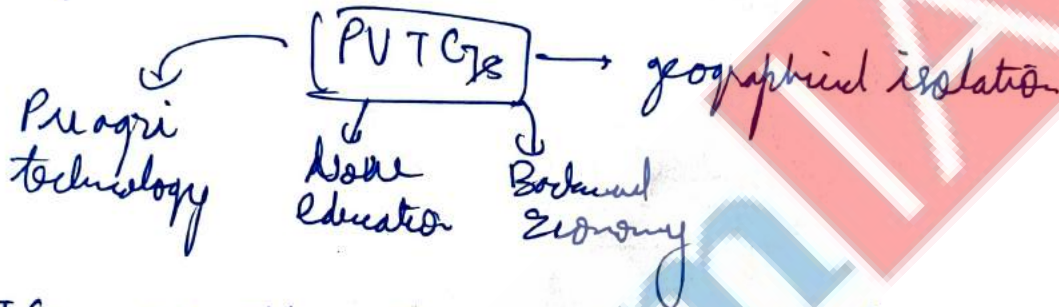 PVTGs
geographical isolation
Pre agri
technology
None
education
Backward
Economy